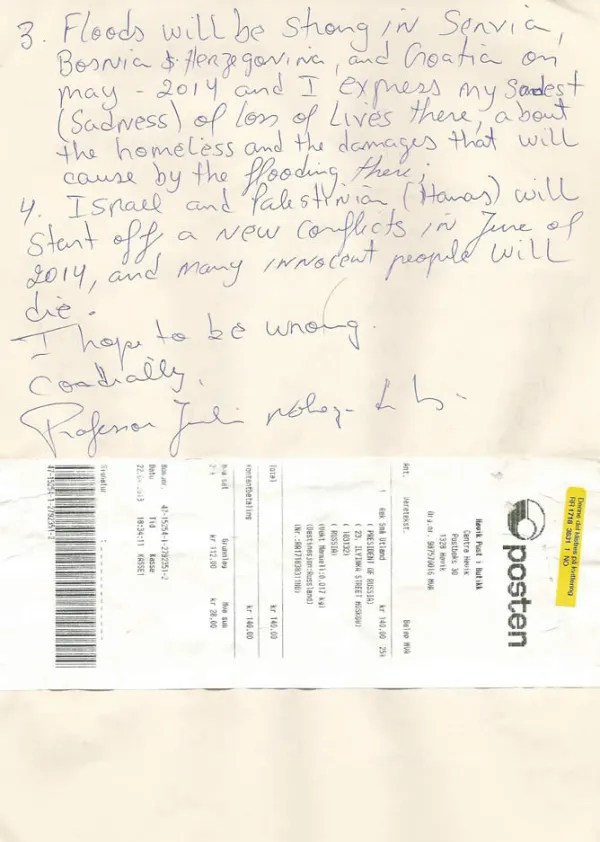 3. Floods will be strong in Servia,
Bosnia & Herzegovina, and Croatia on
may - 2014 and I express my sadest
(Sadness) of loss of Lives there, about
the homeless and the damages that will
cause by the flooding there;
4. Israel and Palestinian (Hamas) will
start off a new conflicts in June of
2014, and many innocent people will
die.
I hope to be wrong.
Coadially,
Professor
posten
Denne del klistres på kvittering
RR 1718 3831 1 NO
Høvik Post i Butikk
Centra Høvik
Postboks 30
1329 Høvik
Org.nr. 987570016 MVA
Ant. Varetekst. Beløp MVA
1 Rek Små Utland kr 140,00 25%
(PRESIDENT OF RUSSIA)
(23, ILYINKA STREET MOSKOW)
(103132)
(RUSSIA)
(Vekt Manuell:0.017 kg)
(Destinasjon:Russland)
(Nr.:RR171838311NO)
Total kr 140,00
Kontantbetaling kr 140,00
Mva sat Grunnlag Mva sum
kr 112,00 kr 28,00
Bonnr. 47-15254-1-2792351-2
Dato Tid Kasse
18:34:11 KASSE1
Signatur
47-15254-1-2792351-2